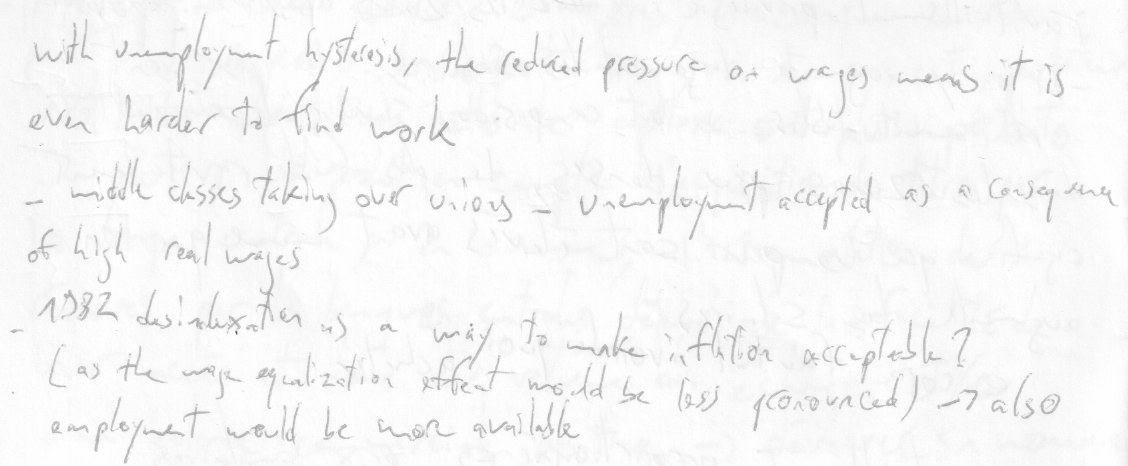 with unemployment hysteresis, the reduced pressure on wages means it is
even harder to find work
- middle classes taking over unions - unemployment accepted as a consequence
of high real wages
- 1982 desindexation as a way to make inflation acceptable?
(as the wage equalization effect would be less pronounced) → also
employment would be more available